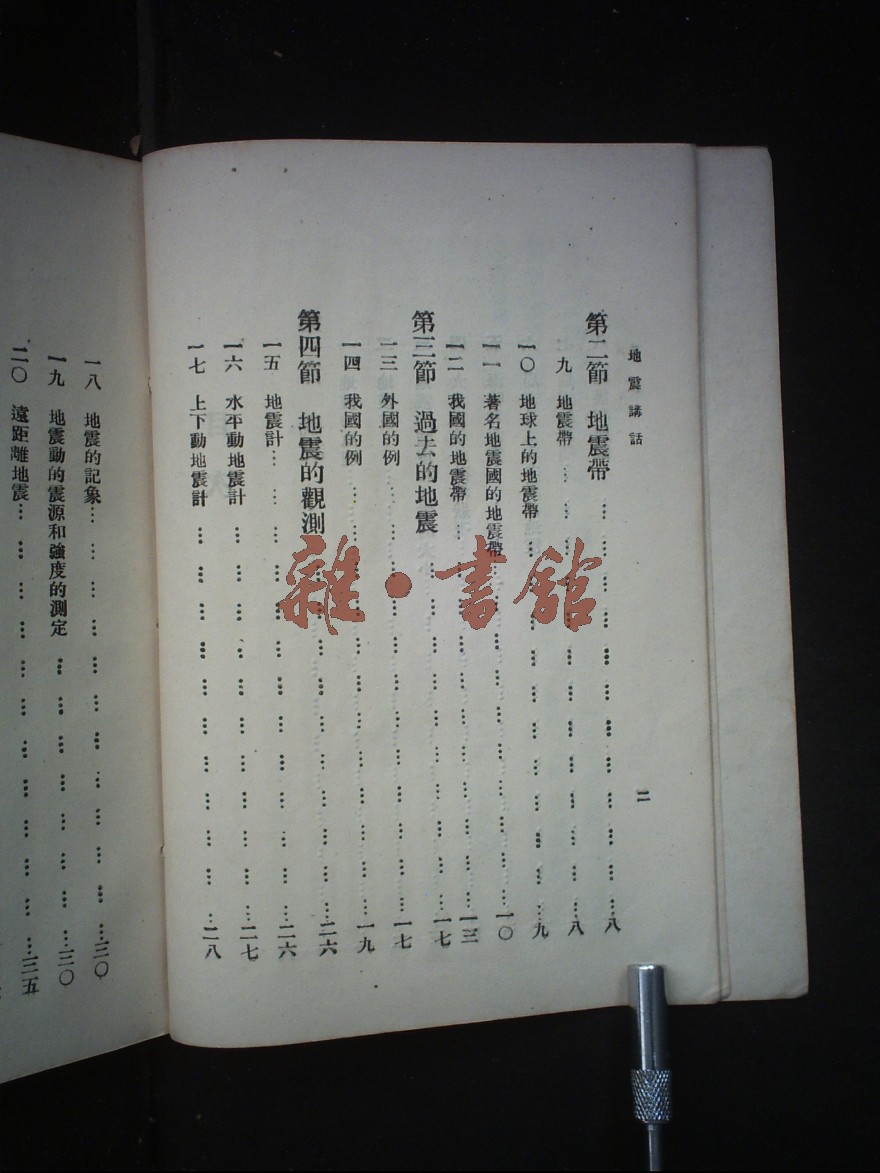 地震講話
二
第二節 地震帶……八
九 地震帶……八
一〇 地球上的地震帶……九
一一 著名地震國的地震帶……一〇
一二 我國的地震帶……一三
第三節 過去的地震……一七
一三 外國的例……一七
一四 我國的例……一九
第四節 地震的觀測……二六
一五 地震計……二六
一六 水平動地震計……二七
一七 上下動地震計……二八
一八 地震的記象……三〇
一九 地震動的震源和強度的測定……三〇
二〇 遠距離地震……三五
雜·書館